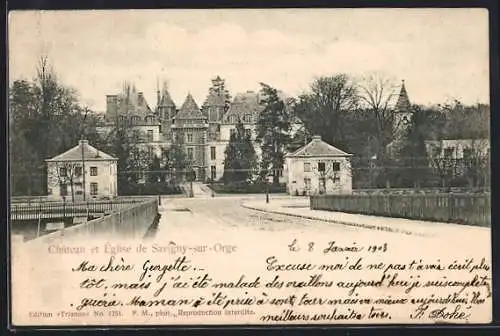 Château et Église de Savigny-sur-Orge
le 8 Janvier 1903
Ma chère Georgette ... Excuse moi de ne pas t'avoir écrit plus
tôt, mais j'ai été malade des oreillons aujourd'hui je suis complète
guérie. Maman a été prise à son tour mais aujourd'hui
meilleurs souhaits
Edition «Trianon» No 1251. P. M., phot., Reproduction interdite.